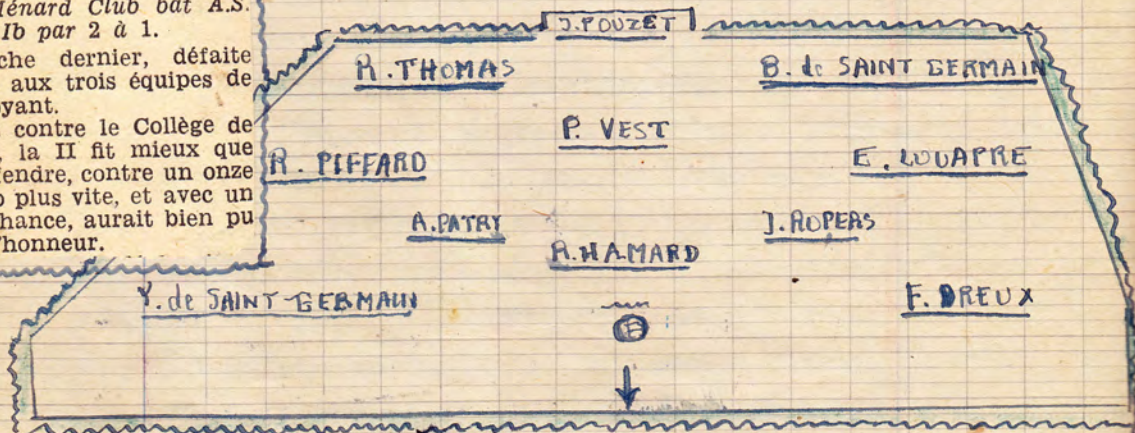 Ménard Club bat A.S.
Ib par 2 à 1.
che dernier, défaite
aux trois équipes de
oyant.
contre le Collège de
, la II fit mieux que
fendre, contre un onze
p plus vite, et avec un
hance, aurait bien pu
'honneur.
J. POUZET
R. THOMAS
B. de SAINT GERMAIN
P. VEST
R. PIFFARD
E. LOUAPRE
A. PATRY
J. ROPERS
R. HAMARD
Y. de SAINT-GERMAIN
F. DREUX